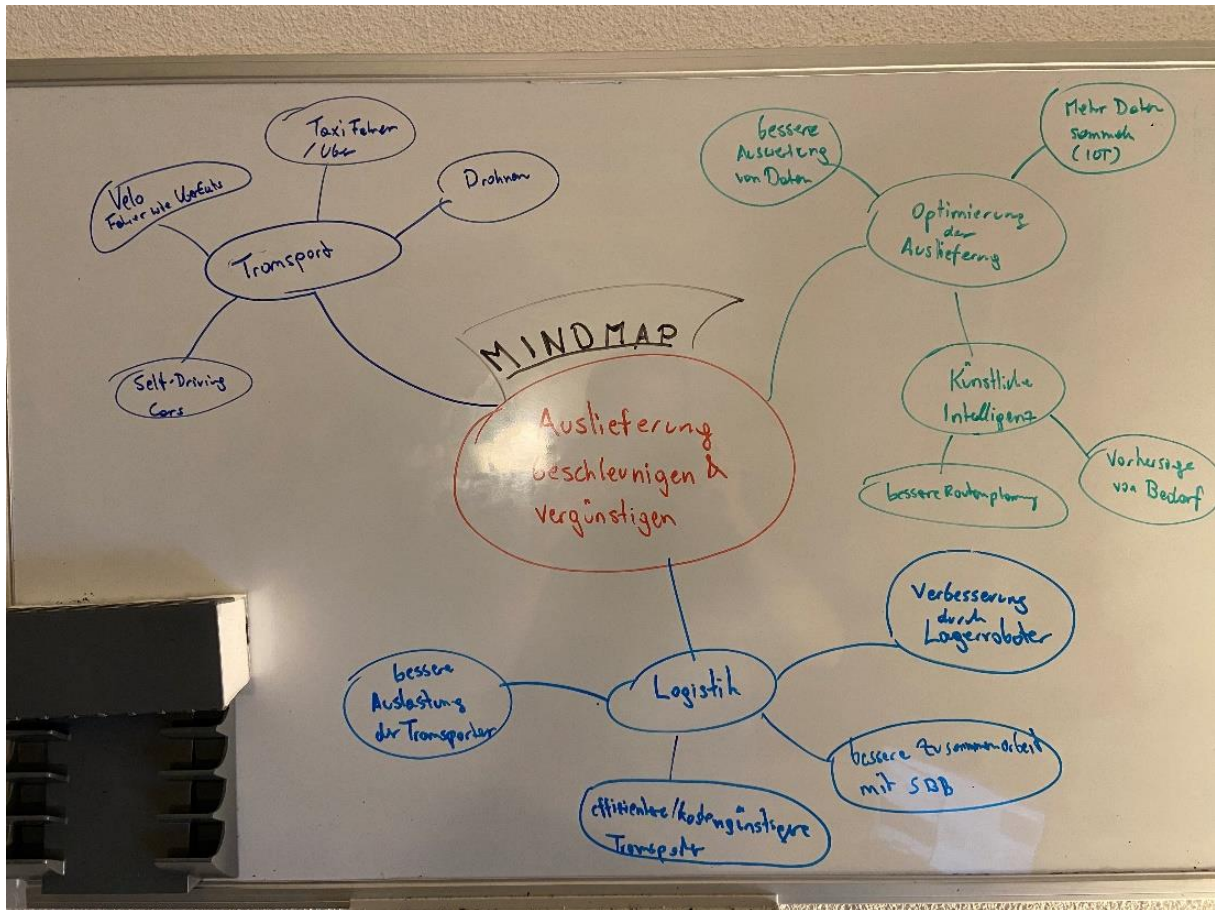 MINDMAP
Auslieferung
beschleunigen &
vergünstigen
Transport
Taxi Fahrer
/Uber
Velo
Fahrer wie UberEats
Drohnen
Self-Driving
Cars
Optimierung
der
Auslieferung
bessere
Auswertung
von Daten
Mehr Daten
sammeln
(IOT)
Künstliche
Intelligenz
bessere Routenplanung
Vorhersage
von Bedarf
Logistik
Verbesserung
durch
Lagerroboter
bessere Zusammenarbeit
mit SBB
effizientere/kostengünstigere
Transporter
bessere
Auslastung
der Transporter